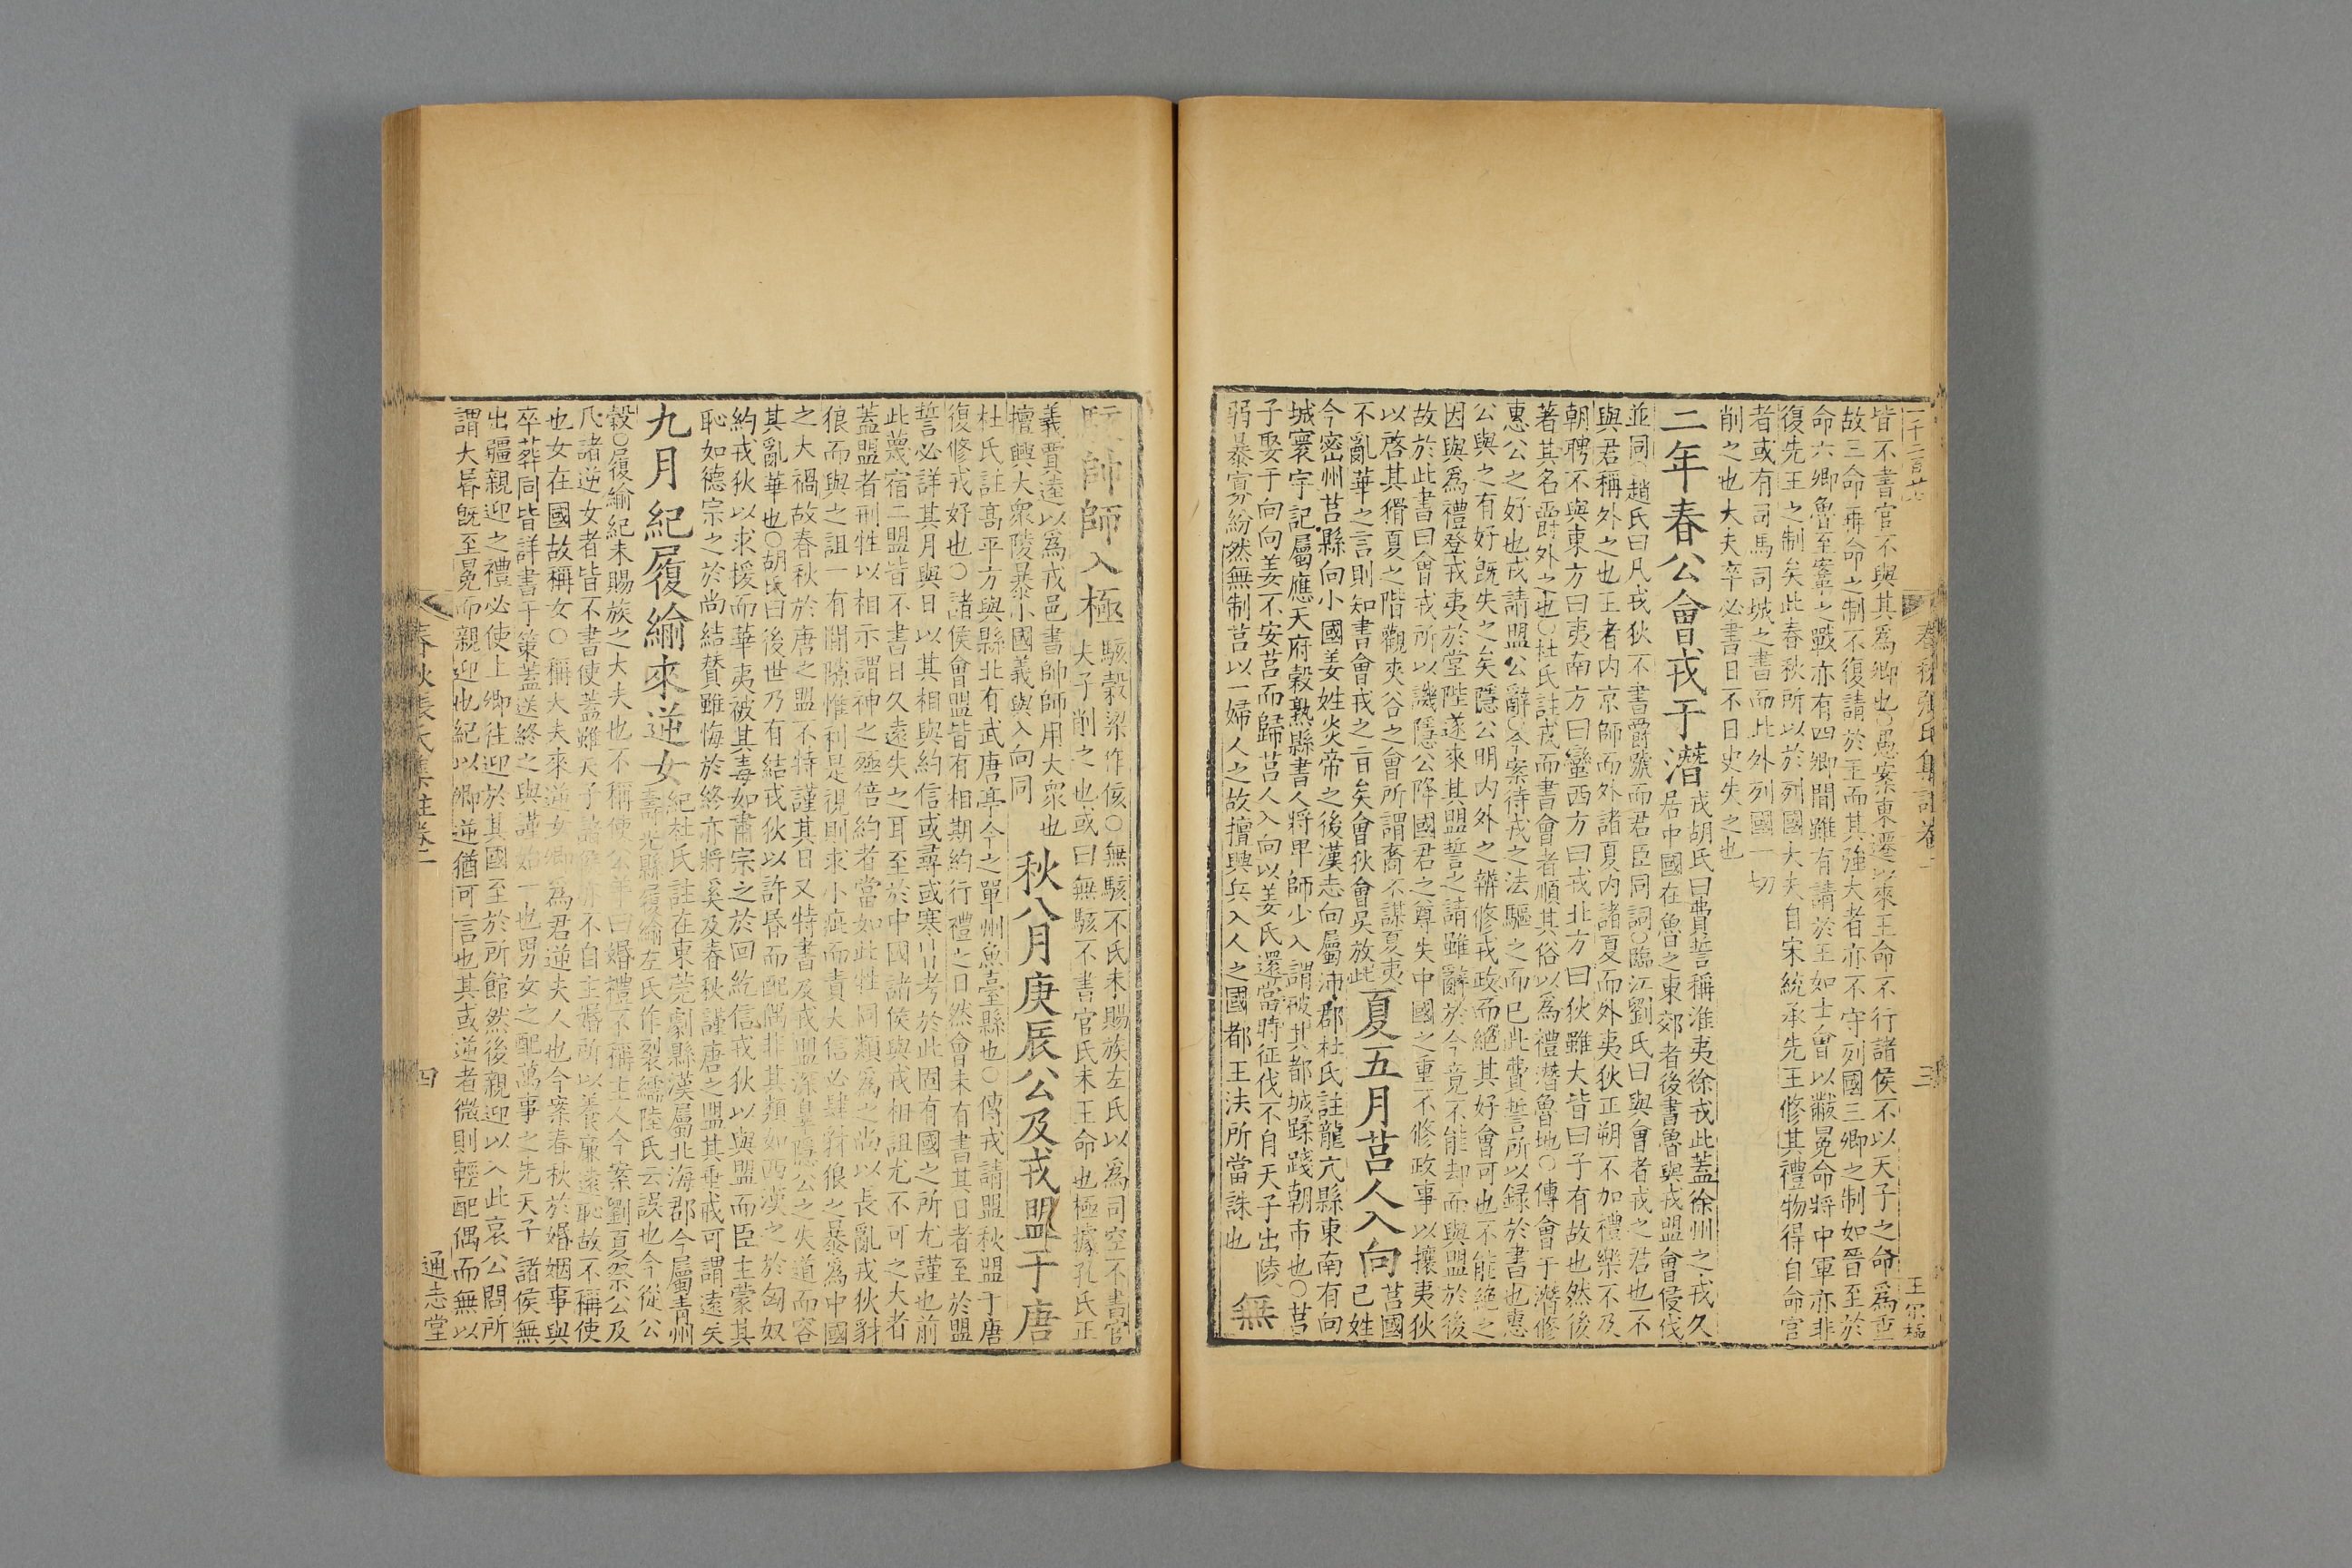 皆不書官不與其爲卿也○愚案東遷以來王命不行諸侯不以天子之命爲重
故三命再命之制不復請於王而其強大者亦不守列國三卿之制如晉至於
命六卿魯至鞌之戰亦有四卿間雖有請於王如士會以黻冕命將中軍亦非
復先王之制矣此春秋所以於列國大夫自宋統承先王修其禮物得自命官
者或有司馬司城之書而此外列國一切
削之也大夫卒必書日不日史失之也
二年春公會戎于潛
戎胡氏曰費誓稱淮夷徐戎此蓋徐州之戎久
居中國在魯之東郊者後書魯與戎盟會侵伐
並同○趙氏曰凡戎狄不書爵號而君臣同詞○臨江劉氏曰與會者戎之君也不
與君稱外之也王者内京師而外諸夏内諸夏而外夷狄正朔不加禮樂不及
朝聘不與東方曰夷南方曰蠻西方曰戎北方曰狄雖大皆曰子有故也然後
著其名爵外之也○杜氏註戎而書會者順其俗以爲禮潛魯地○傳會于潛修
惠公之好也戎請盟公辭○今案待戎之法驅之而已此費誓所以録於書也惠
公與之有好既失之矣隱公明内外之辨修戎政而絕其好會可也不能絕之
因與爲禮登戎夷於堂陛遂來其盟誓之請雖辭於今竟不能却而與盟於後
故於此書曰會戎所以譏隱公降國君之尊失中國之重不修政事以攘夷狄
以啓其猾夏之階觀夾谷之會所謂裔不謀夏夷
不亂華之言則知書會戎之㫖矣會狄會吳放此
夏五月莒人入向
莒國
己姓
今密州莒縣向小國姜姓炎帝之後漢志向屬沛郡杜氏註龍亢縣東南有向
城寰宇記屬應天府穀熟縣書人將甲師少入謂破其都城蹂踐朝市也○莒
子娶于向向姜不安莒而歸莒人入向以姜氏還當時征伐不自天子出陵
弱暴寡紛然無制莒以一婦人之故擅興兵入人之國都王法所當誅也
無
駭帥師入極
駭榖梁作侅○無駭不氏未賜族左氏以爲司空不書官
夫子削之也或曰無駭不書官氏未王命也極據孔氏正
義賈逵以爲戎邑書帥師用大衆也
擅興大衆陵暴小國義與入向同
秋八月庚辰公及戎盟于唐
杜氏註高平方與縣北有武唐亭今之單州魚臺縣也○傳戎請盟秋盟于唐
復修戎好也○諸侯會盟皆有相期約行禮之日然會未有書其日者至於盟
誓必詳其月與日以其相與約信或尋或寒□□考於此固有國之所尤謹也前
此蔑宿二盟皆不書日久遠失之耳至於中國諸侯與戎相詛尤不可之大者
蓋盟者刑牲以相示謂神之殛倍約者當如此牲同類爲之尚以長亂戎狄豺
狼而與之詛一有間隙惟利是視則求小疵而責大信必肆豺狼之暴爲中國
之大禍故春秋於唐之盟不特謹其日又特書及戎盟深辠隱公之失道而容
其亂華也○胡氏曰後世乃有結戎狄以許昏而配偶非其類如西漢之於匈奴
約戎狄以求援而華夷被其毒如肅宗之於回紇信戎狄以與盟而臣主蒙其
恥如德宗之於尚結贊雖悔於終亦將奚及春秋謹唐之盟其垂戒可謂遠矣
九月紀履緰來逆女
紀杜氏註在東莞劇縣漢屬北海郡今屬青州
壽光縣履緰左氏作裂繻陸氏云誤也今從公
榖○履緰紀未賜族之大夫也不稱使公羊曰婚禮不稱主人今案劉夏祭公及
凡諸逆女者皆不書使蓋雖天子諸侯亦不自主婚所以養廉遠恥故不稱使
也女在國故稱女○稱大夫來逆女卿爲君逆夫人也今案春秋於婚姻事與
卒葬同皆詳書于策蓋送終之與謹始一也男女之配萬事之先天子諸侯無
出疆親迎之禮必使上卿往迎於其國至於所館然後親迎以入此哀公問所
謂大昬既至冕而親迎也紀以卿逆猶可言也其或逆者微則輕配偶而無以
春秋張氏集註卷一
四
通志堂